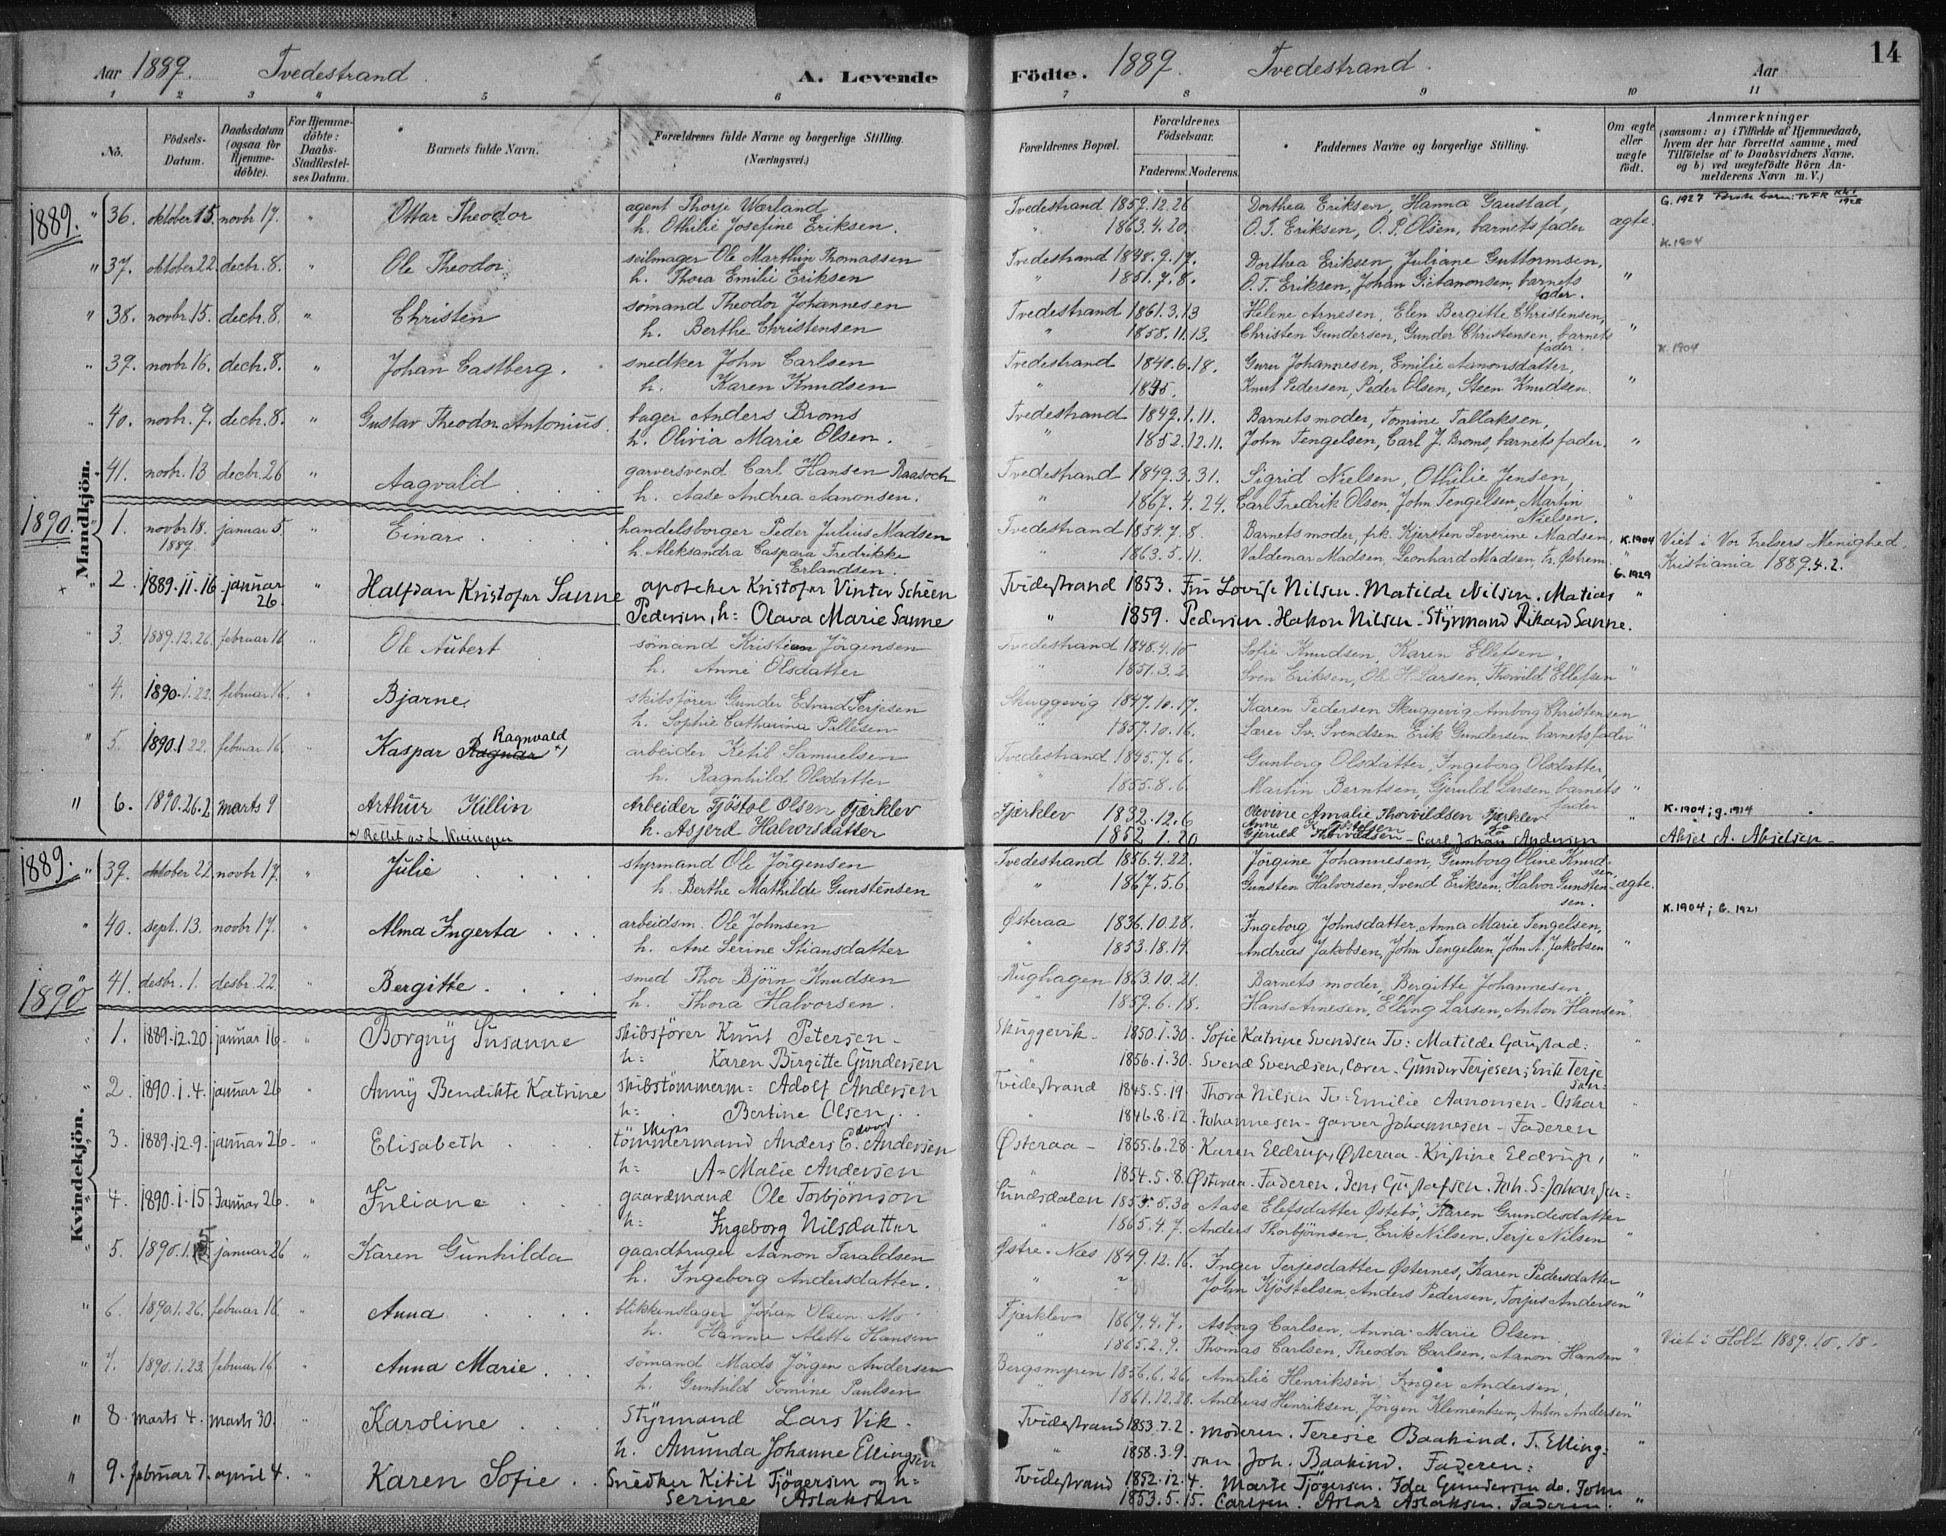 Aar 1889. Tvedestrand. A. Levende Födte. 1889. Tvedestrand. Aar 14
1 2 3 4 5 6 7 8 9 10 11
No. Födsels-Datum. Daabsdatum (ogsaa for Hjemmedöbte). For Hjemmedöbte: Daabs-Stadfæstelses Datum. Barnets fulde Navn. Forældrenes fulde Navne og borgerlige Stilling. (Næringsvei.) Forældrenes Bopæl. Forældrenes Födselsaar. Faderens. Moderens. Faddernes Navne og borgerlige Stilling. Om ægte eller uægte födt. Anmærkninger (saasom: a) i Tilfælde af Hjemmedaab, hvem der har forrettet samme, med Tilföielse af to Daabsvidners Navne, og b) ved uægtefödte Börn Anmelderens Navn m. V.)
1889. Mandkjön.
" 36. oktober 15. novbr 17. " Ottar Theodor agent Thorje Warland Tvedestrand 1859.12.26 Dorthea Eriksen, Hanna Gaustad, G. 1927
h. Othilie Josefine Eriksen. " 1863.4.20. O. T. Eriksen, O. P. Olsen, barnets fader ægte.
" 37. oktober 22. decbr. 8. " Ole Theodor seilmager Ole Marthin Thomassen Tvedestrand 1848.9.17. Dorthea Eriksen, Juliane Guttormsen, K. 1904
h. Thora Emilie Eriksen " 1851.7.8. O. T. Eriksen, Johan barnets fader. "
" 38. novbr. 15. decbr. 8. " Christen sömand Theodor Johannesen Tvedestrand 1861.3.13 Helene Arnesen, Elen Bergitte Christensen,
h. Berthe Christensen " 1858.11.13. Christen Gundersen, Gunder Christensen, barnets fader. "
" 39. novbr 16. decbr. 8. " Johan Castberg. snedker John Carlsen Tvedestrand 1840.6.18. Gurer Johannesen, Emilie Aanonsdatter, K. 1904
h. Karen Knudsen " 1845. Knut Pedersen, Peder Olsen, Steen Knudsen. "
" 40. novbr. 9. decbr. 8. " Gustav Theodor Antonius. bager Anders Broms Tvedestrand 1849.1.11. Barnets moder, Tomine Tallaksen,
h. Olivia Marie Olsen. " 1852.12.11. John Tengelsen, Carl J. Broms, barnets fader. "
41. novbr. 13 decbr. 26 " Aagvald garversvend Carl Hansen Raasoch Tvedestrand 1849.3.31. Sigrid Nielsen, Othilie Jensen,
h. Aase Andrea Aanonsen. " 1867.4.24. Carl Fredrik Olsen, John Tengelsen, Martin Nielsen. "
1890.
" 1. novbr 18. 1889. januar 5. " Einar handelsborger Peder Julius Madsen Tvedestrand 1854.7.8. Barnets moder, frk. Kjersten Severine Madsen, K. 1904 Viet i Vor Frelsers Menighed
h. Aleksandra Caspara Fredrikke Erlandsen. " 1863.5.11. Valdemar Madsen, Leonhard Madsen, Östrem. " Kristiania 1889.4.2.
+ 2. 1889.11.16. januar 26. " Halfdan Kristofer Sanne apoteker Kristofer Vinter Scheen Tvidestrand 1853. Louise Nilsen. Matilde Nilsen. Matias G. 1929 "
Pedersen, h= Olava Marie Sanne " 1859. Pedersen. Hakon Nilsen - Styrmand Rikard Sanne.
" 3. 1889.12.26. februar 16 " Ole Aubert sömand Kristian Jörgensen Tvedestrand 1848.4.10 Sofie Knudsen, Karen Ellefsen,
h. Anne Olsdatter " 1851.3.2. Sven Eriksen, Ole H. Larsen, Thorvild Ellefsen "
" 4. 1890.1.22. februar 16. " Bjarne skibsförer Gunder Edvard Terjesen Skuggevig 1847.10.17. Karen Pedersen Skuggevig Amborg Christensen
h. Sophie Catharina Pallesen " 1857.10.16. Lærer Sv. Svendsen Erik Gundersen barnets fader "
" 5. 1890.1.22. februar 16. " Kaspar Ragnar Ragnvald x) arbeider Ketil Samuelsen Tvedestrand 1845.7.6. Gunborg Olsdatter, Ingeborg Olsdatter,
h. Ragnhild Olsdatter " 1855.8.6. Martin Berntsen, Gjeruld Larsen, barnets fader "
" 6. 1890.26.2 marts 9 Arthur Killin Arbeider Tjöstol Olsen Fjærklev Fjærklev 1832.12.6 Olevine Amalie Thorvildsen Fjærklev " K. 1904; g. 1914
x) Rettet av L. h. Asjerd Halvorsdatter 1852 1.20 Gjeruld Thorvildsen - Carl Johan Andersen Aksel A. Akselsen -
1889. Kvindekjön.
" 39. oktober 22. novbr 17. " Julie styrmand Ole Jörgensen Tvedestrand 1856.4.22. Jörgine Johannesen, Gumborg Oline Knudsen,
h. Berthe Mathilde Gunstensen " 1867.5.6. Gunsten Halvorsen, Svend Eriksen, Halvor Gunstensen. ægte.
" 40. sept. 13. novbr 17. " Alma Ingerta arbeidsm. Ole Johnsen Østeraa 1836.10.28. Ingeborg Johnsdatter, Anna Marie Tengelsen, K. 1904; G. 1921
h. Ane Serine Stiansdatter " 1853.18.14. Andreas Jakobsen, John Tengelsen, John A. Jakobsen "
" 41. desbr. 1. desbr. 22. " Bergitte smed Thor Björn Knudsen Rughagen 1863.10.21. Barnets moder, Bergitte Johannesen,
h. Thora Halvorsen. " 1859.6.18. Hans Arnesen, Elling Larsen, Anton Hansen "
1890
" 1. 1889.12.20. januar 16 " Borgny Susanne skibsförer Knut Petersen - Skuggevik - 1850.1.30. Sofie Katrine Svendsen Tv: Matilde Gaustad:
h= Karen Birgitte Gundersen 1856.1.30. Svend Svendsen, Lærer - Gunder Terjesen; Erik Terjesen: "
" 2. 1890.1.4. januar 26 " Anny Bendikte Katrine skibstömmerm= Adolf Andersen Tvidestrand 1845.5.19. Thora Nilsen Tv: Emilie Aanonsen - Oskar
h= Bertine Olsen. " 1846.8.12. Johannesen - garver Johannesen - Faderen "
" 3. 1889.12.9. januar 26 " Elisabeth skibs tömmermand Anders Edvard Andersen Østeraa - 1855.6.28. Karen Eldrup, Østeraa - Kristine Eldrup,
h= A=Malie Andersen 1854.5.8. Østeraa - Faderen. Jens Gustafsen. Joh. S. Johansen= "
" 4. 1890.1.15. Januar 26. " Juliane gaardmand Ole Torbjörnson Sundsdalen 1853.5.30 Aase Elefsdatter Østebö, Karen Grundesdatter
h= Ingeborg Nilsdatter " 1865.4.7. Anders Thorbjönsen, Erik Nilsen, Terje Nilsen "
" 5. 1890.1.5 januar 26 " Karen Gunhilda gaardbruger Aanon Taraldsen Østre-Næs 1849.12.16. Inger Terjesdatter Østernes, Karen Pedersdatter
h. Ingeborg Andersdatter. " " John Kjöstelsen, Anders Pedersen, Torjus Andersen "
" 6. 1890.1.26. februar 16 " Anna blikkenslager Johan Olsen Mo Fjærklev 1869.4.7. Asborg Carlsen, Anna Marie Olsen
h. Hanna Alette Hansen " 1865.2.9. Thomas Carlsen, Theodor Carlsen, Aanon Hansen " Viet i Holt 1889.10.18.
" 7. 1890.1.23. februar 16 " Anna Marie sömand Mads Jörgen Andersen Bergsmyren 1856.6.26. Amalie Henriksen Inger Andersen,
h. Gunhild Tomine Paulsen " 1861.12.28. Andreas Henriksen, Jörgen Klementsen, Anton Andersen "
" 8. marts 4. marts 30. " Karoline Styrmand Lars Vik. Tvidestrand 1853.7.2. moderen. Teresie Baakind. T. Elling=
h. Amunda Johanne Ellingsen " 1858.3.9. sen Joh. Baakind. Faderen: "
" 9. februar 7. april 4. " Karen Sofie. Snedker Kitil Tjögersen og h= Tvidestrand 1852.12.4. Marte Tjögersen. Ida Gundersen do. John
Serine Aslaksen 1853.5.15. Carlsen. Aslak Aslaksen. Faderen. "